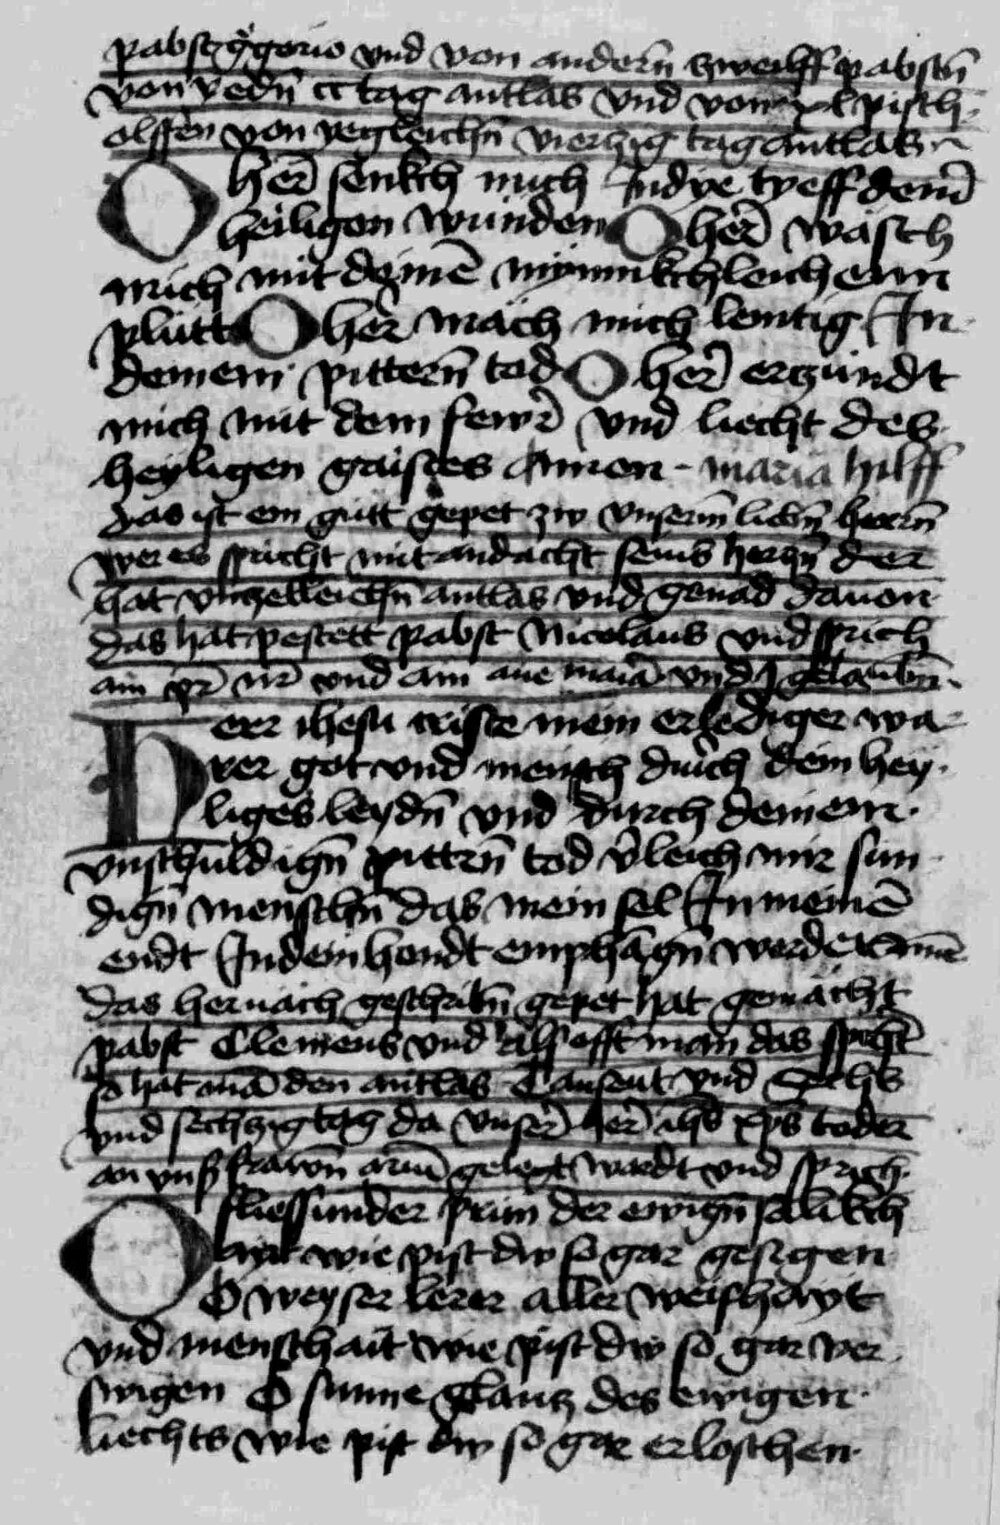 pabst g̊gorio vnd von andern̄ zwelff pabstn̄
von yedn̄ cc tag antlas vnd von xl pisch¬
olffen von yegleichn̄ vierzig tag antlas
O her̄ senkch mich In dye tyeff deinr̄
heiligen wunden O her̄ wasch
mich mit deinē mynnikchleichenn
plutt O her̄ mach mich lentig In
deinem pittern̄ tod O her̄ erzundt
mich mit dem fewr̄ vnd liecht des
heyligen gaistes Amen - maria hilff
das ist ein gutt gepet zw vnserm̄ liebn̄ herrn̄
wer es spricht mit andacht seins herczn̄ der
hat vnzelleichn̄ antlas vnd genad dauon
das hat pestett pabst Nicolaus vnd sprich
ain pr̄ nr̄ vnd ain aue maiā vnd j gelaubn̄
Herr ihesu criste mein erlediger wa¬
rer got vnd mensch durch dein hey¬
liges leydn̄ vnd durch deinem
vnschuldign̄ pittrn̄ tod v̄leich mir sun¬
dign̄ menschn̄ das mein sel In meinē
endt In dein hendt emphāgn̄ werde Amē
das hernach geschribn̄ gepet hat gemacht
pabst Clemens vnd als offt man das spricht
so hat mā den antlas Tausent vnd Sechs
vnd sechzig tag da vnser̄ her̄ ihs̄ xps̄ toder
an vnsß frawn̄ arm̄ gelegt wardt vnd sprich
O fliessunder prun der ewign̄ salikch
ayt wie pist dw so gar gesigen
O weyser lerer aller weishayt
vnd menschait wie pist dw so gar ver¬
swigen O sunne glantz des ewigen
liechts wie pist dw so gar erloschen